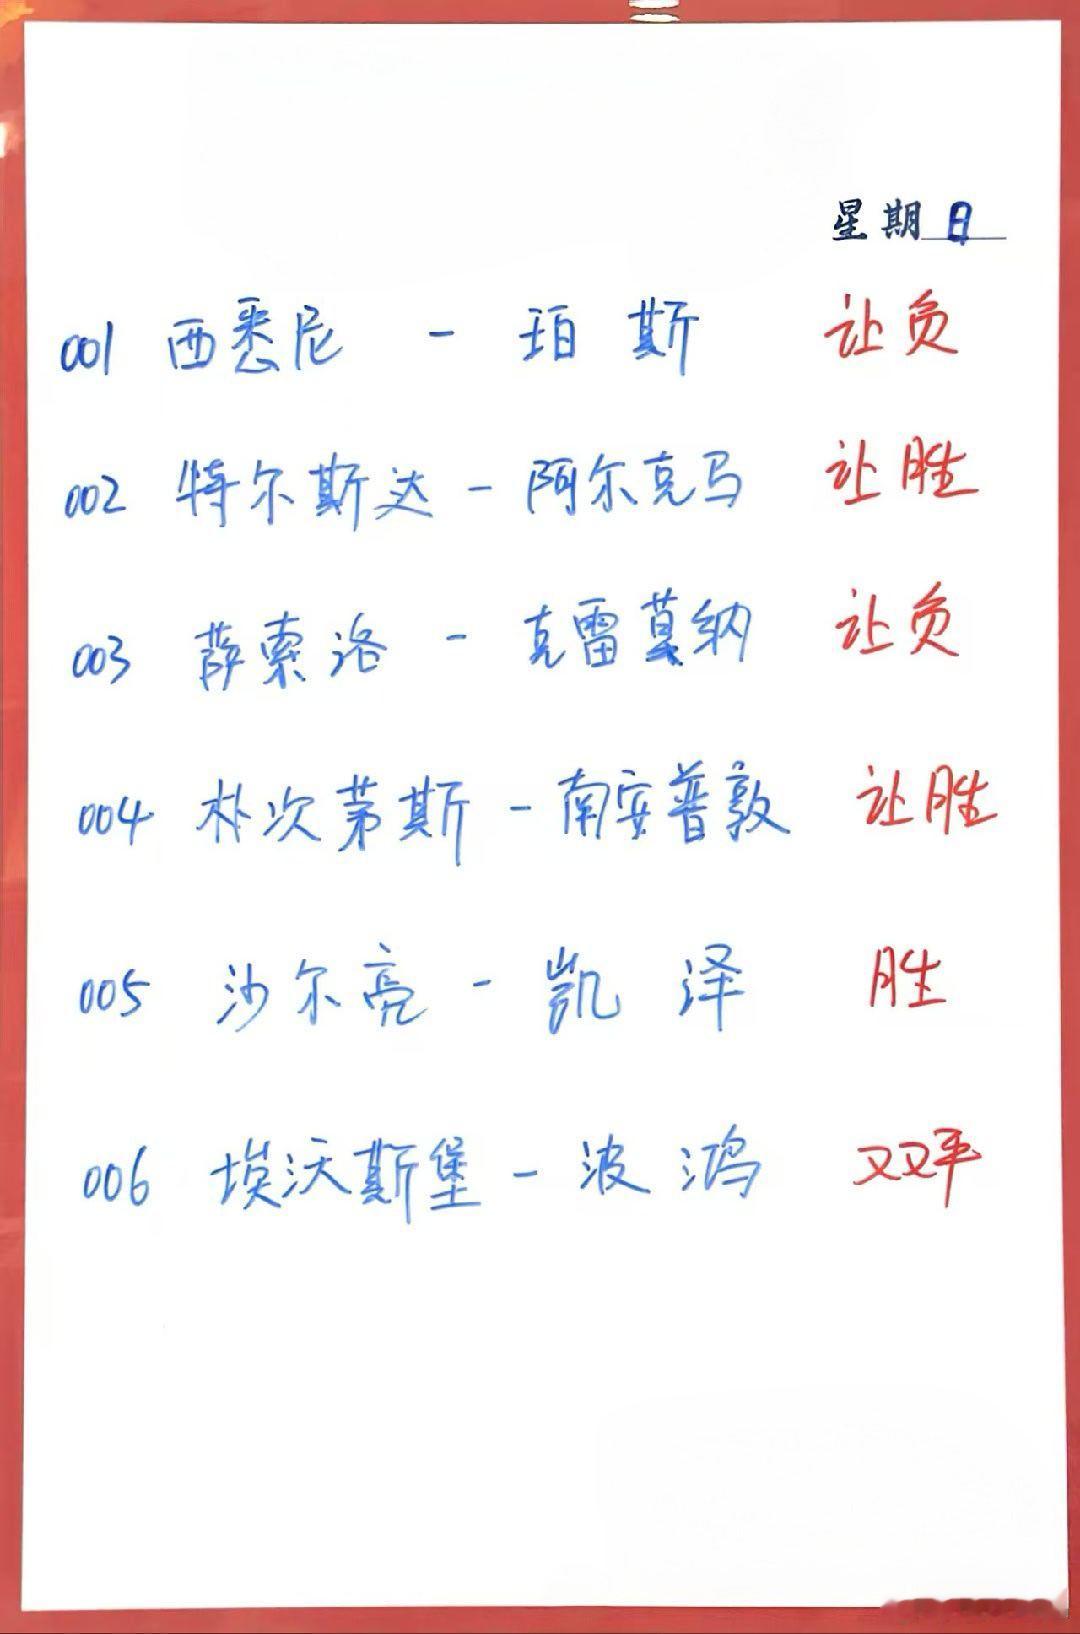 星期日
001 西悉尼 - 珀斯 让负
002 特尔斯达 - 阿尔克马 让胜
003 萨索洛 - 克雷莫纳 让负
004 朴次茅斯 - 南安普敦 让胜
005 沙尔克 - 凯泽 胜
006 埃沃斯堡 - 波鸿 双平